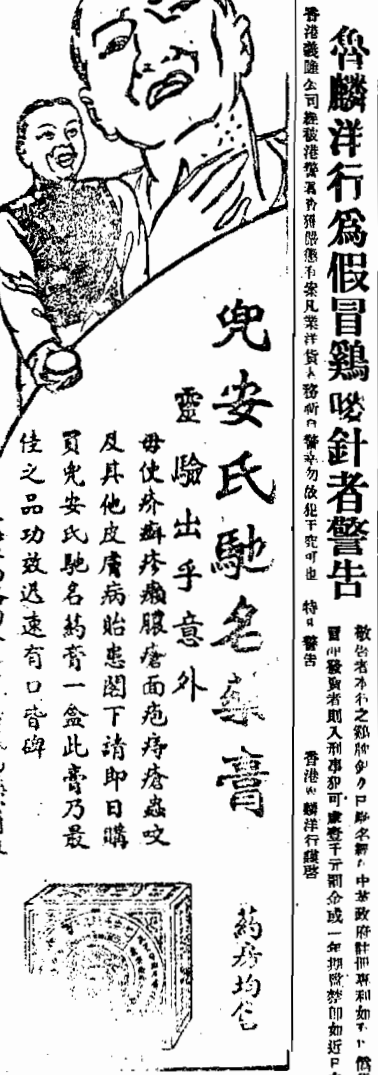 魯麟洋行爲假冒鷄嘜針者警告
敬告者本行之鷄嘜針久已馳名經中華政府註冊專利如有
冒牌發賣者則入刑事犯可處壹千元罰金或一年期監禁即如近日
香港義隆公司經被港警署查獲嚴懲有案凡業洋貨者務祈自警幸勿故犯干究可也 特此警告
香港魯麟洋行謹啓
兜安氏馳名藥膏
靈驗出乎意外
毋使疥癬疹癩臁瘡面疱痔瘡蟲咬
及其他皮膚病貽患閣下請即日購
買兜安氏馳名藥膏一盒此膏乃最
佳之品功效迅速有口皆碑
藥房均售